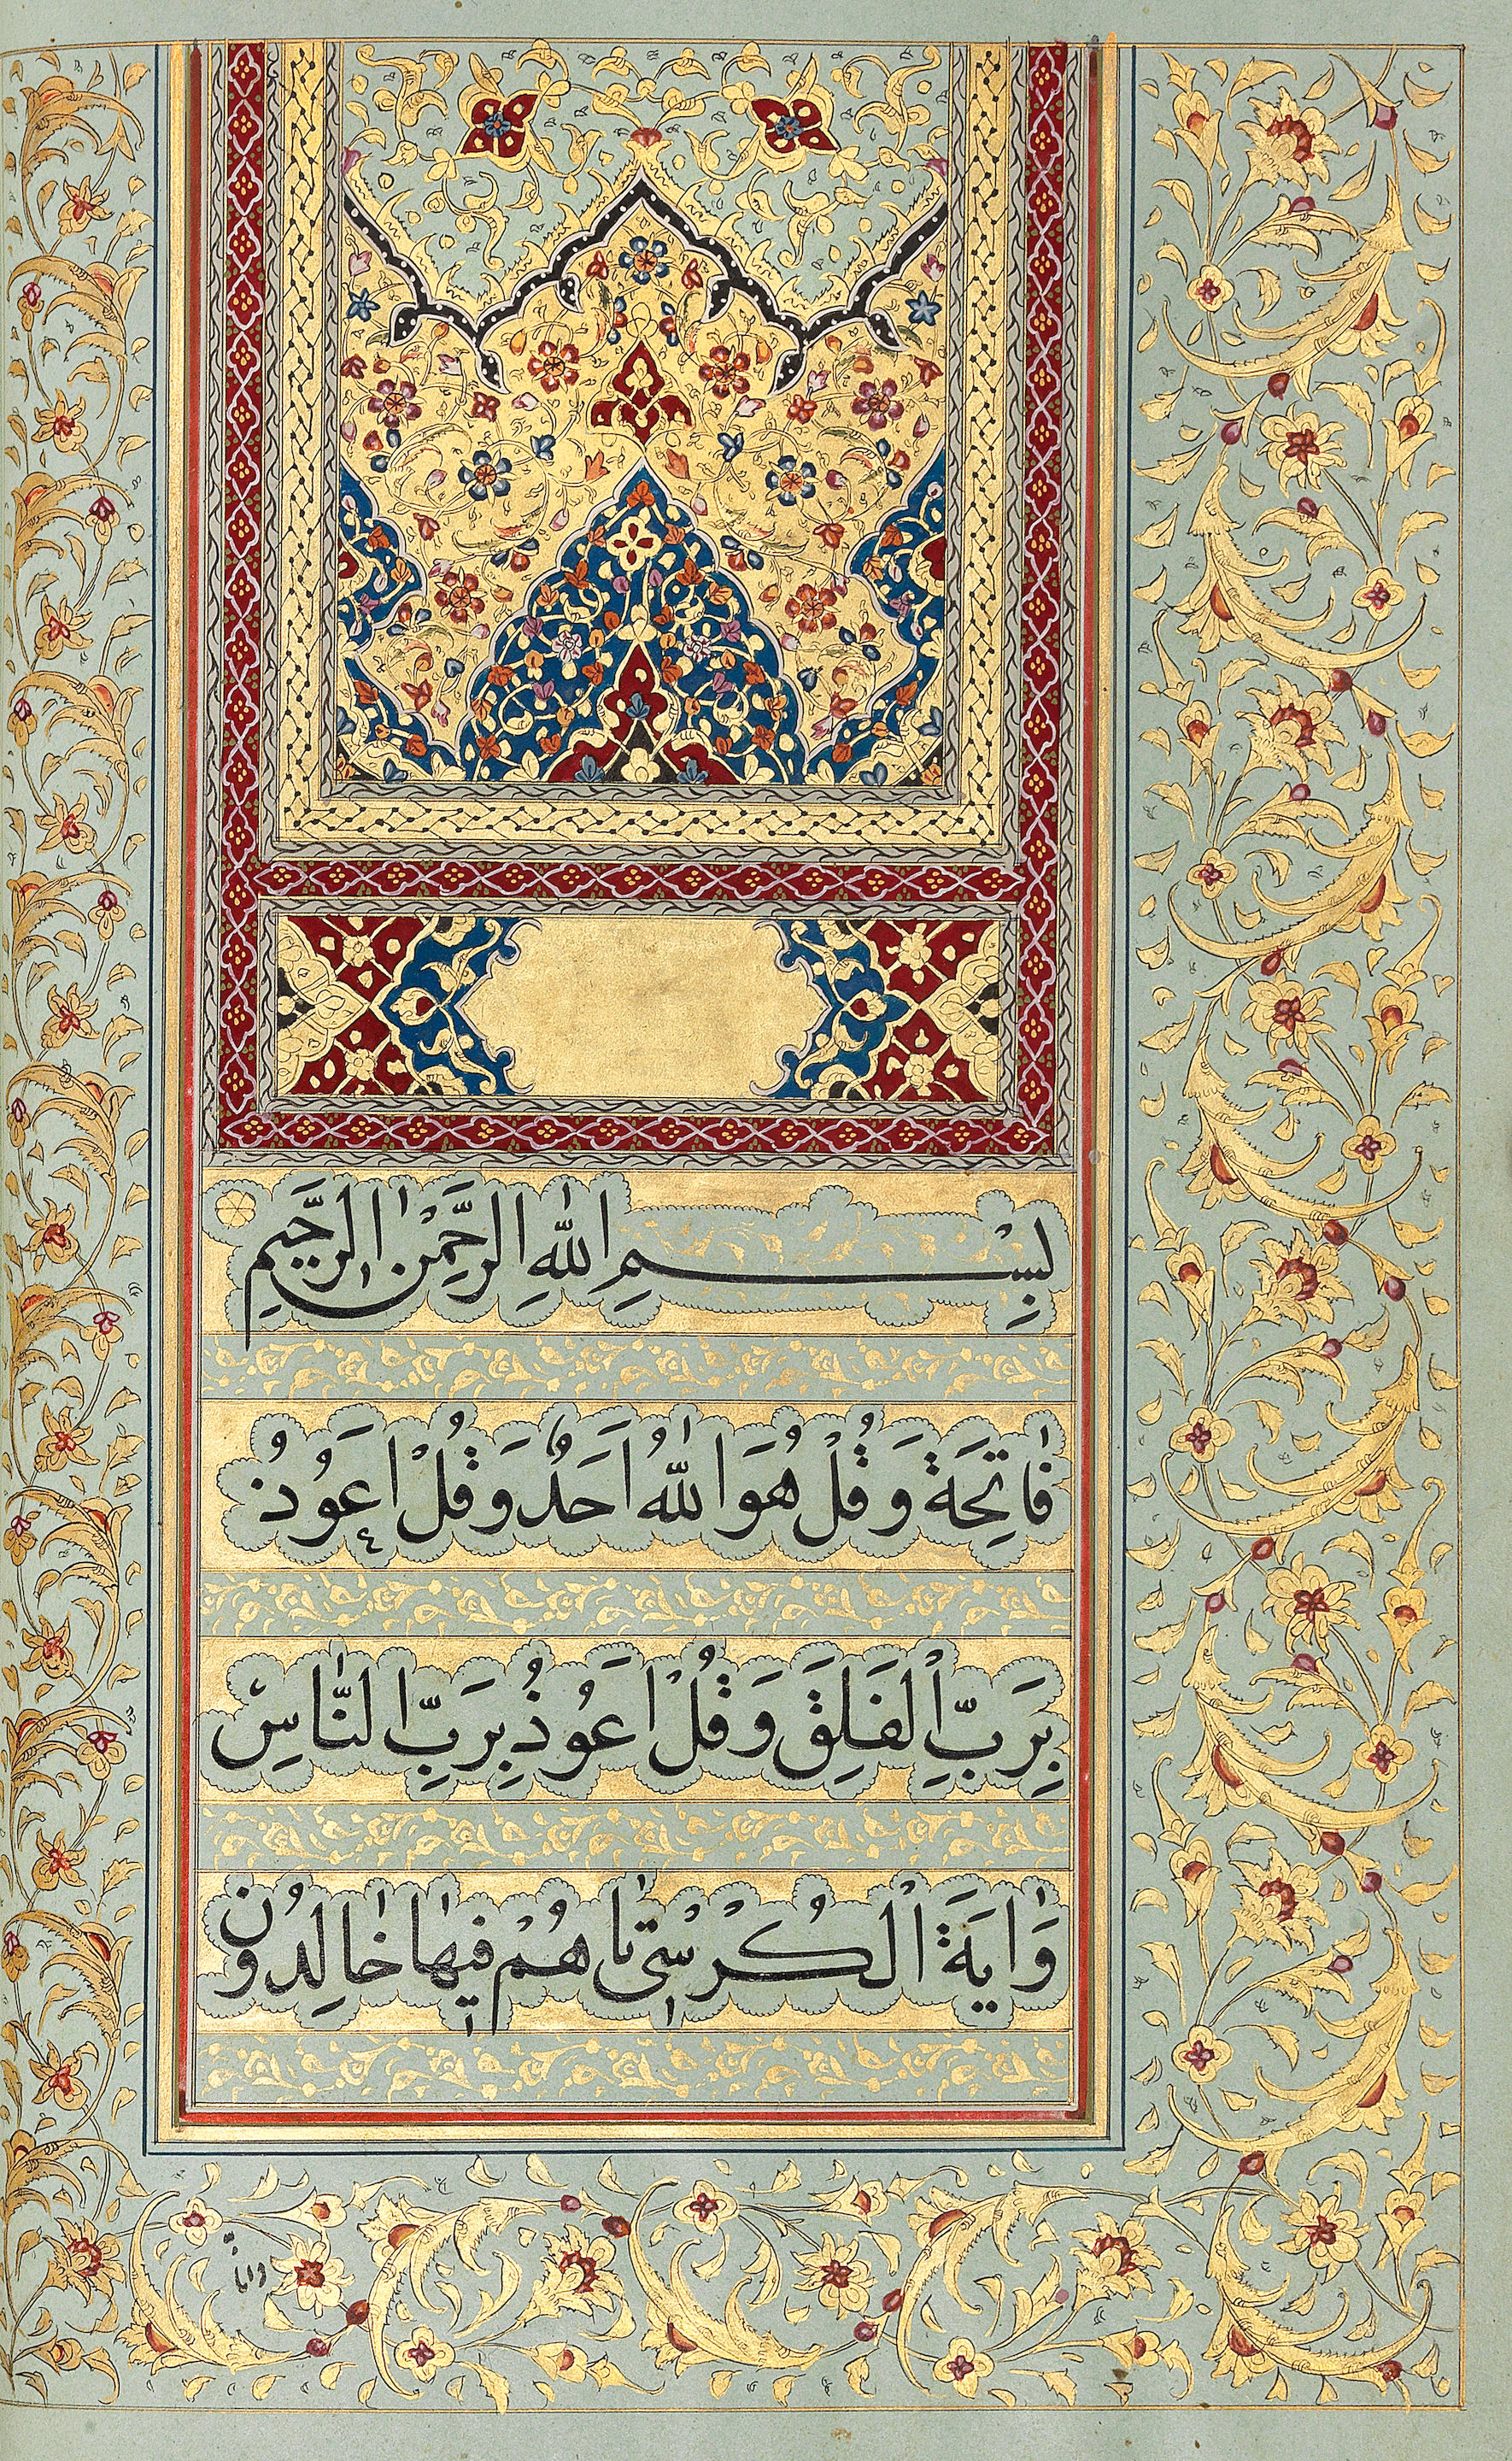 بِسْمِ اللّٰهِ الرَّحْمٰنِ الرَّحٖيمِ
فَاتِحَة وَ قُلْ هُوَ اللّٰهُ اَحَدٌ وَ قُلْ اَعُوذُ
بِرَبِّ الْفَلَقِ وَ قُلْ اَعُوذُ بِرَبِّ النَّاسِ
وَ اٰيَةَ الْكُرْسٖى تا هُمْ فٖيهٰا خٰالِدُونَ